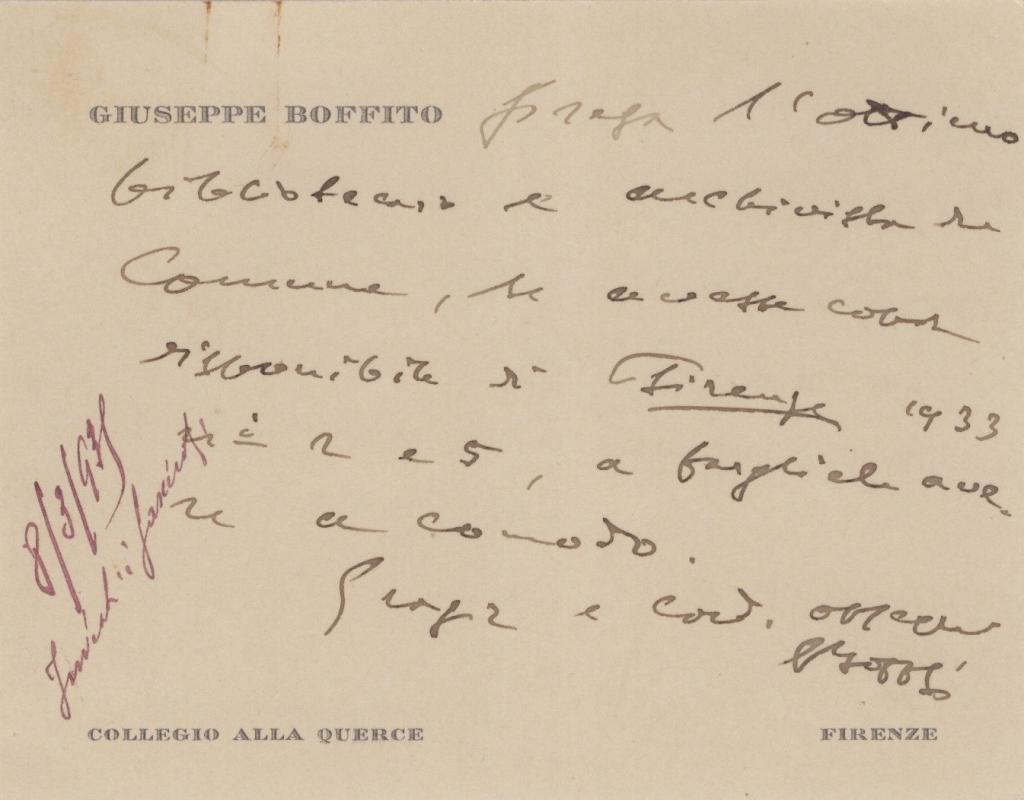 GIUSEPPE BOFFITO prega l'ottimo
bibliotecario e archivista del
Comune, se avesse copia
disponibile di Firenze 1933
ni 2 e 5, a farglieli ave-
re a comodo.
Grazie e cord. ossequi
GBoffito
8/3/935
Inviati i fascicoli
COLLEGIO ALLA QUERCE FIRENZE